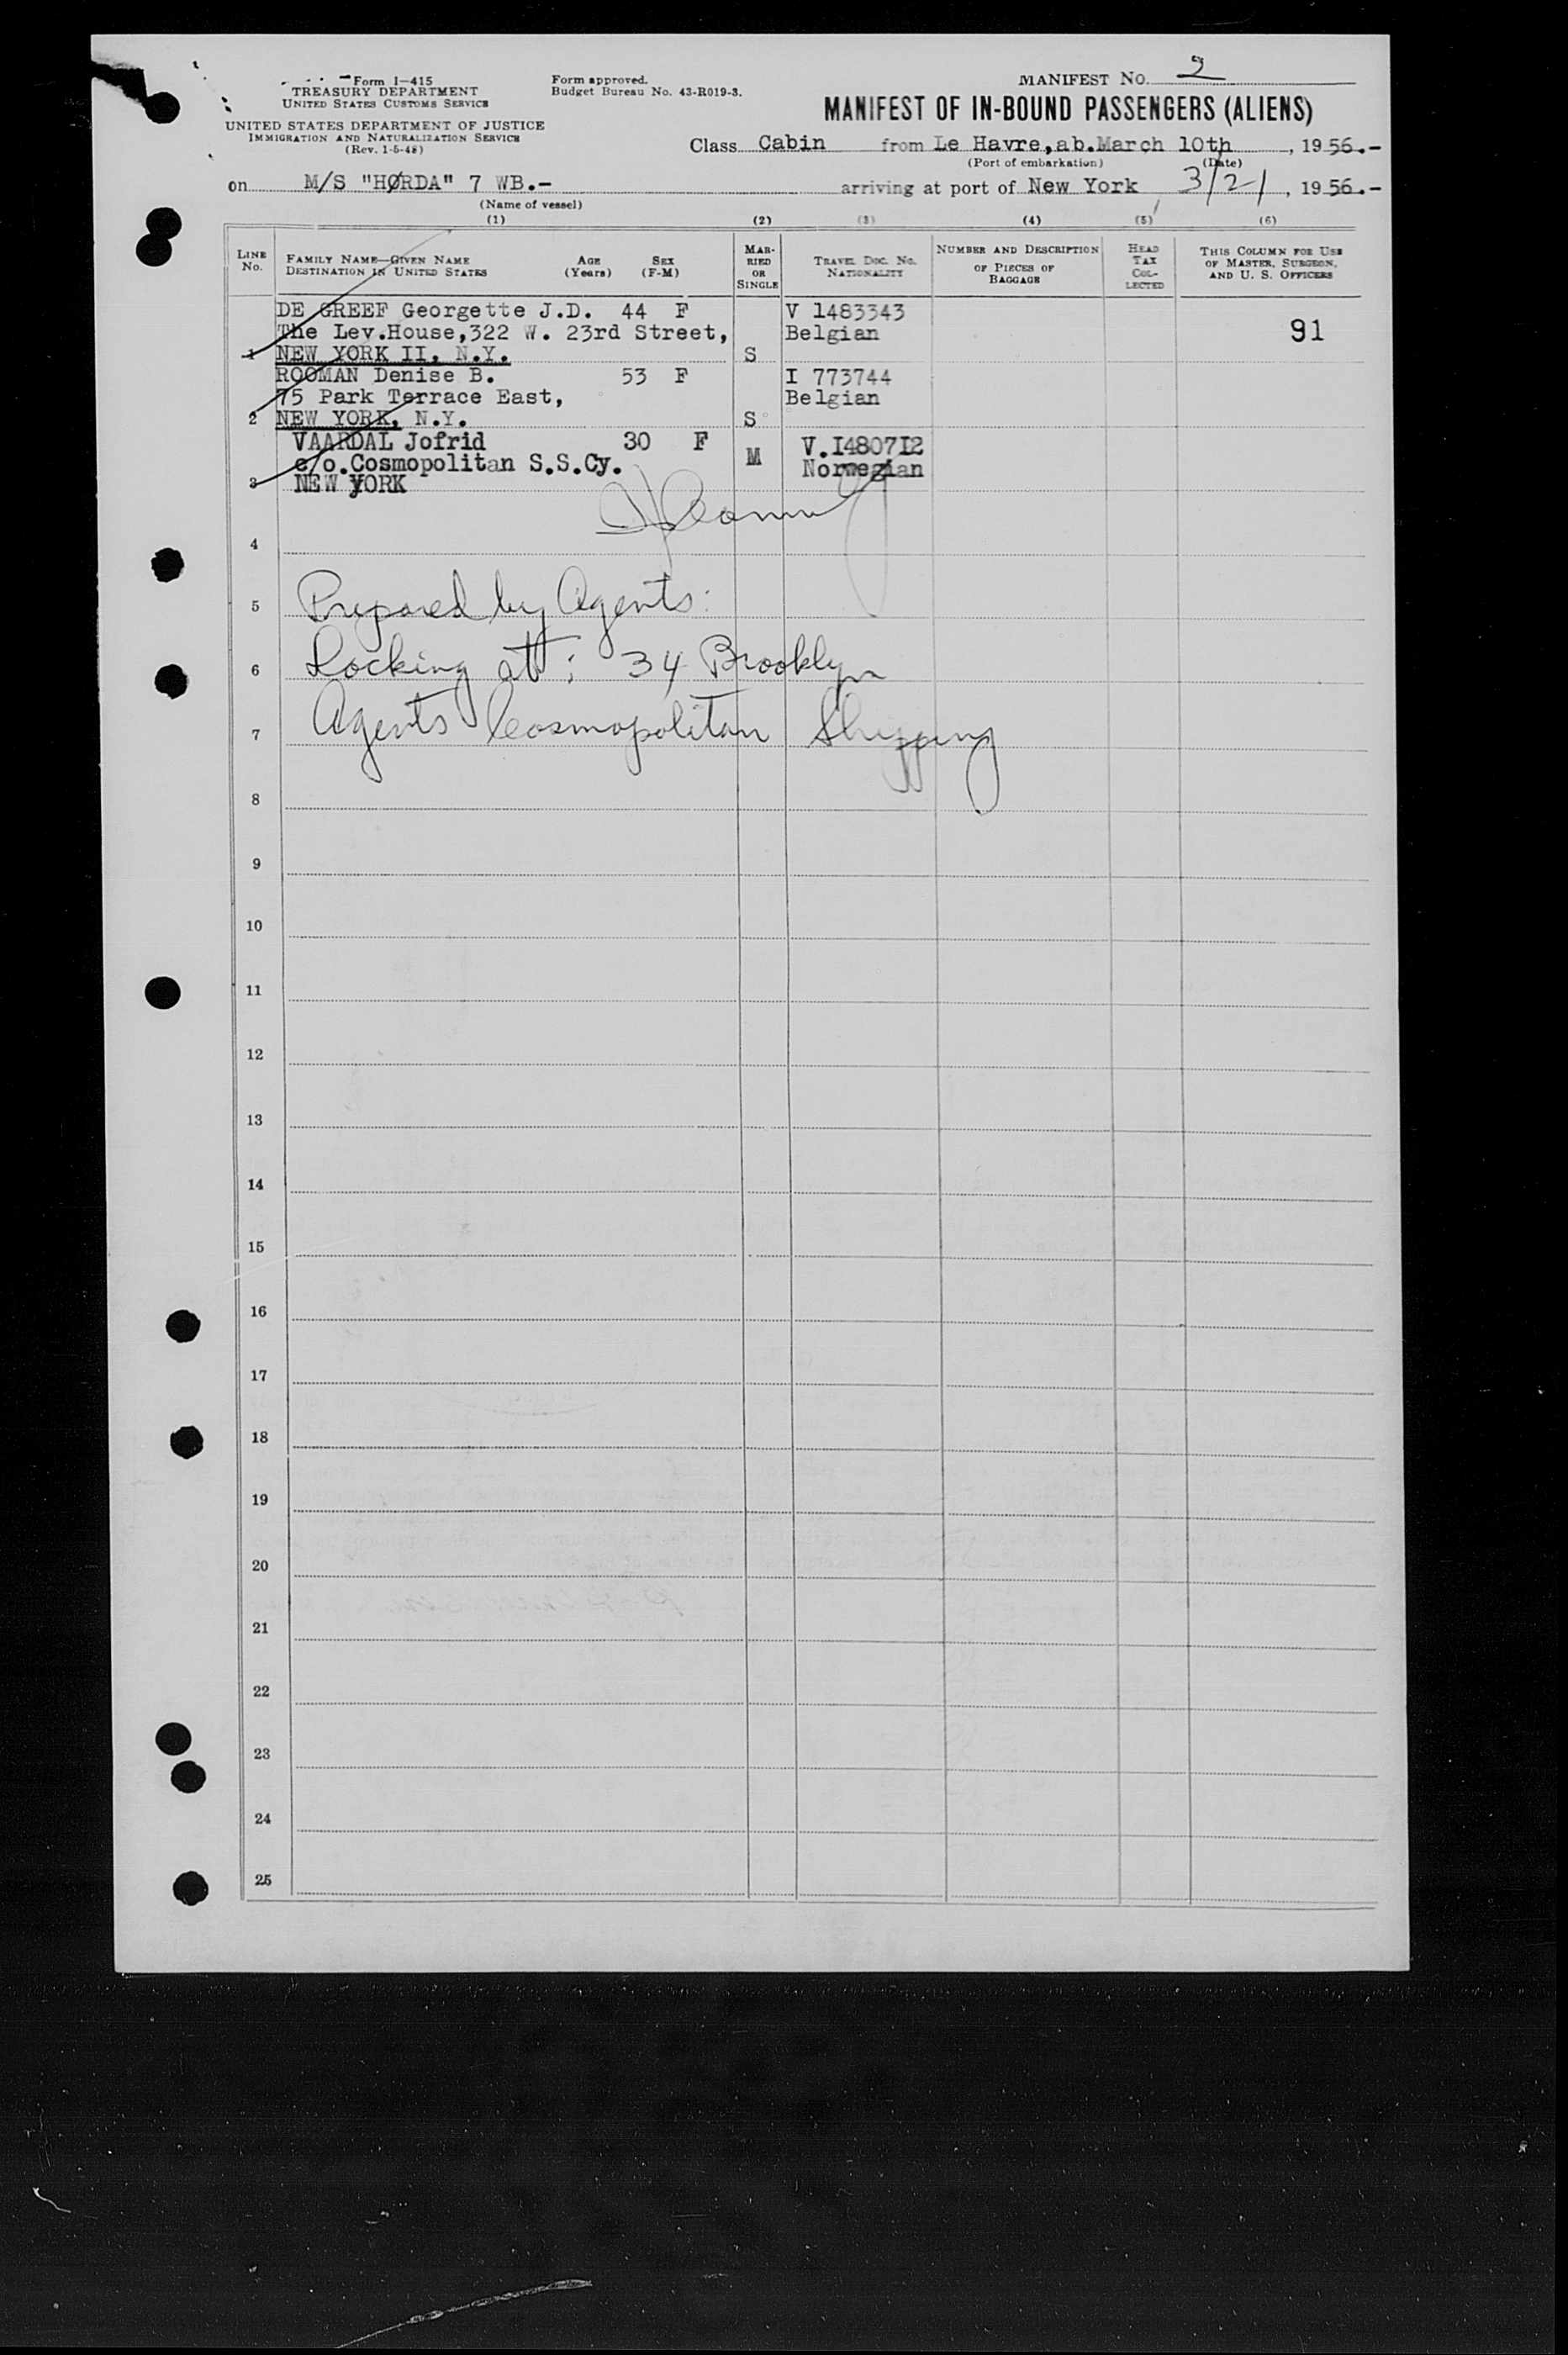 Form I-415
TREASURY DEPARTMENT
UNITED STATES CUSTOMS SERVICE
UNITED STATES DEPARTMENT OF JUSTICE
IMMIGRATION AND NATURALIZATION SERVICE
(Rev. 1-5-48)
Form approved.
Budget Bureau No. 43-R019-3.
MANIFEST NO. 2
MANIFEST OF IN-BOUND PASSENGERS (ALIENS)
Class Cabin from Le Havre,ab.March 10th, 1956.-
(Port of embarkation) (Date)
on M/S "HØRDA" 7 WB.- arriving at port of New York 3/21, 1956.-
(Name of vessel)
(1) (2) (3) (4) (5) (6)
LINE NO.
FAMILY NAME—GIVEN NAME AGE SEX
DESTINATION IN UNITED STATES (Years) (F-M)
MARRIED OR SINGLE
TRAVEL DOC. NO.
NATIONALITY
NUMBER AND DESCRIPTION
OF PIECES OF
BAGGAGE
HEAD
TAX
COL-
LECTED
THIS COLUMN FOR USE
OF MASTER, SURGEON,
AND U. S. OFFICERS
DE GREEF Georgette J.D. 44 F V 1483343
The Lev.House,322 W. 23rd Street, Belgian 91
1 NEW YORK II, N.Y. S
ROOMAN Denise B. 53 F I 773744
75 Park Terrace East, Belgian
2 NEW YORK, N.Y. S
VAARDAL Jofrid 30 F M V.I4807I2
c/o.Cosmopolitan S.S.Cy. Norwegian
3 NEW YORK
4
5 Prepared by Agents:
6 Docking at: 34 Brooklyn
7 Agents Cosmopolitan Shipping
8
9
10
11
12
13
14
15
16
17
18
19
20
21
22
23
24
25